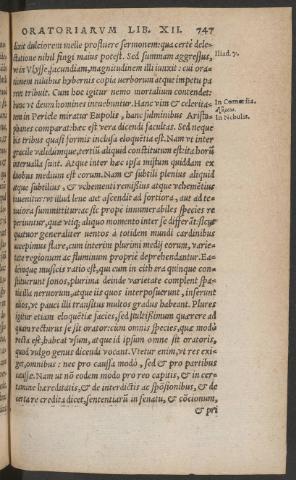 ORATORIARVM LIB. XII. 747
dixit dulciorem melle profluere sermonem: qua certè dele-
ctatione nihil fingi maius potest. Sed summam aggressus,
Iliad. γ.
in Vlysse facundiam, magnitudinem illi iunxit: cui ora-
nem niuibus hybernis copia uerborum atque impetu pa
rem tribuit. Cum hoc igitur nemo mortalium contendet:
hunc ut deum homines intuebuntur. Hanc uim & celerita-
In Comœdia.
tem in Pericle miratur Eupolis, hanc fulminibus Aristo
In Nebulis.
phanes comparat: hæc est uera dicendi facultas. Sed neque
his tribus quasi formis inclusa eloquētia est. Nam ut inter
gracile ualidumque, tertiū aliquid constitutum est: ita horū
interualla sunt. Atque inter hæc ipsa mistum quiddam ex
duobus medium est eorum. Nam & subtili plenius aliquid
atque subtilius, & uehementi remißius atque uehemētius
inuenitur: ut illud lene aut ascendit ad fortiora, aut ad te-
nuiora summittitur: ac sic propè innumerabiles species re
periuntur, quæ utiq; aliquo momento inter se differāt: sicut
quatuor generaliter uentos à totidem mundi cardinibus
accepimus flare, cum interim plurimi medij eorum, uarie-
tate regionum ac fluminum proprij deprehendantur. Ea-
demque musicis ratio est, qui cum in cithara quinque con-
stituerunt sonos, plurima deinde uarietate complent spa-
tia illa neruorum, atque iis quos interposuerunt, inserunt
alios, ut pauci illi transitus multos gradus habeant. Plures
igitur etiam eloquētiæ facies, sed stultißimum quærere ad
quam recturus se sit orator: cùm omnis species, quæ modò
recta est, habeat usum, atque id ipsum omne sit oratoris,
quod uulgo genus dicendi uocant. Vtetur enim, ut res exi-
get, omnibus: nec pro causa modò, sed & pro partibus
causæ. Nam ut nō eodem modo pro reo capitis, & in cer-
tamine hæreditatis, & de interdictis ac spōsionibus, & de
certa re credita dicet, sententiarū in senatu, & cōcionum,
& pri